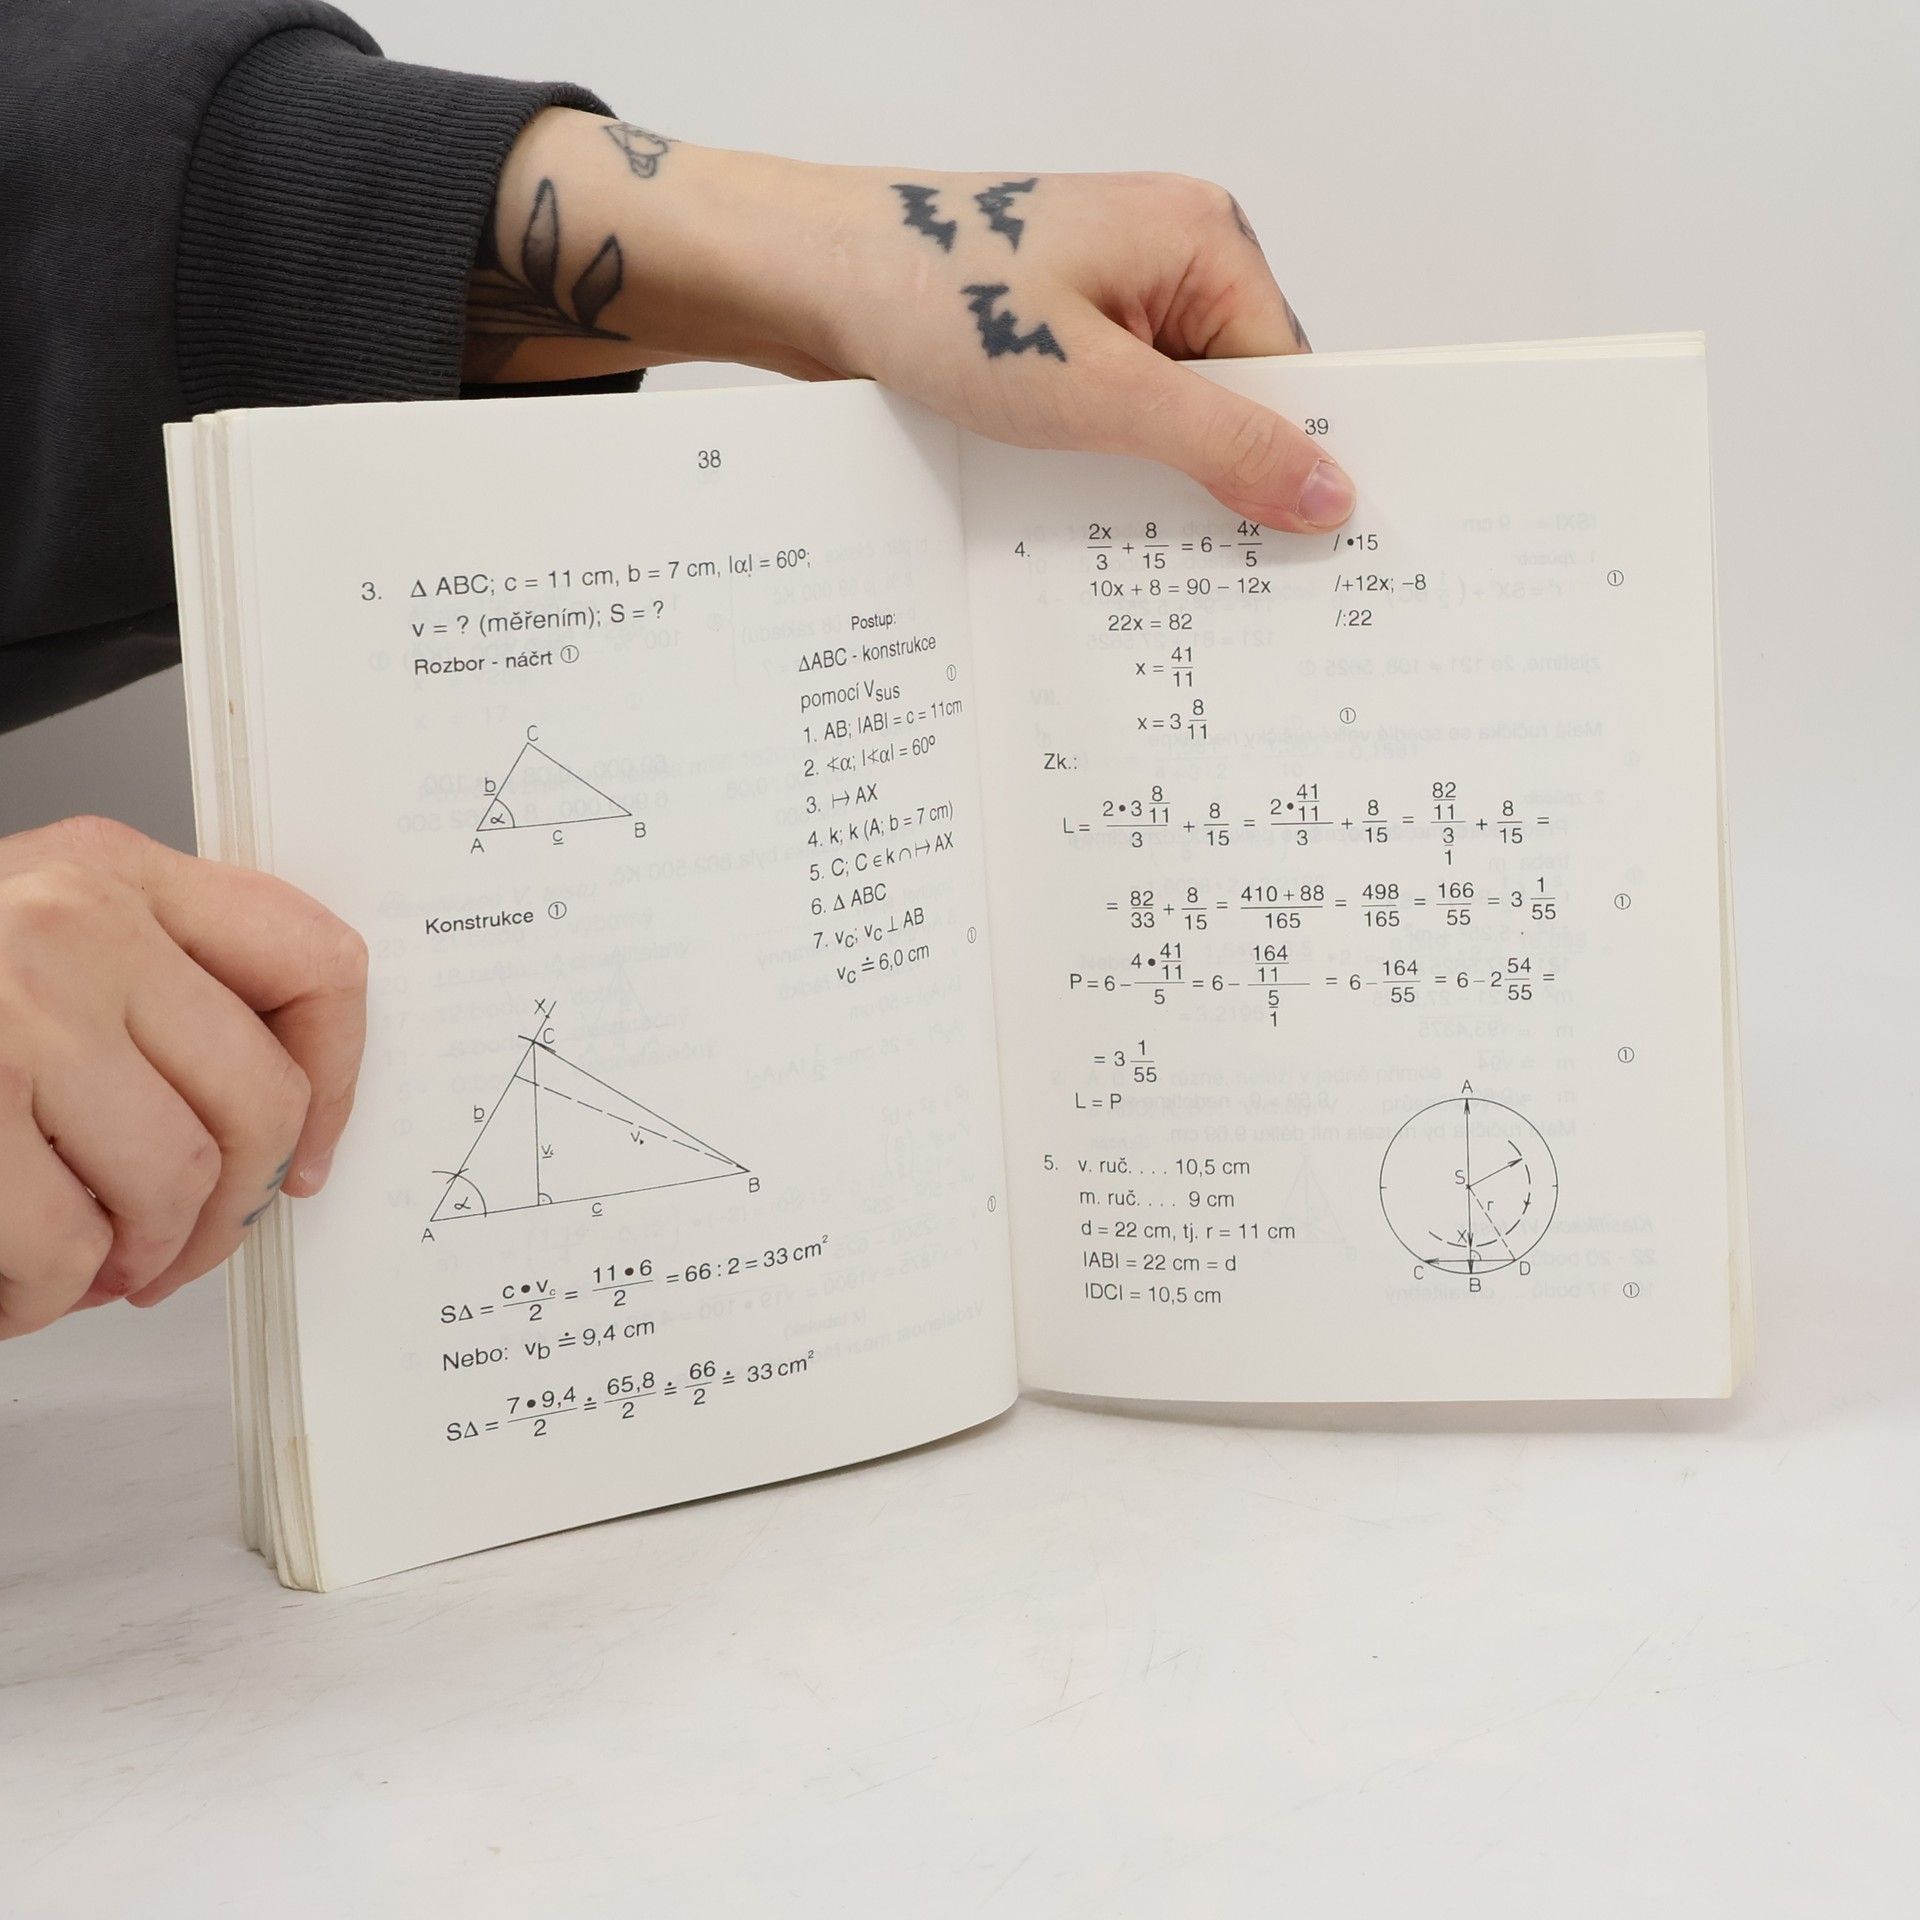 38
3. Δ ABC; c = 11 cm, b = 7 cm, |α| = 60º;
v = ? (měřením); S = ?
Rozbor - náčrt ①
C
b
α
A
c
B
Postup:
ΔABC - konstrukce
pomocí Vsus ①
1. AB; IABI = c = 11cm
2. ∢α; I∢αI = 60º
3. ↦ AX
4. k; k (A; b = 7 cm)
5. C; C ∈ k ∩ ↦ AX
6. Δ ABC
7. vc; vc ⊥ AB ①
vc ≐ 6,0 cm
Konstrukce ①
X
C
b
vc
vb
α
A
c
B
①
SΔ = c • vc / 2 = 11 • 6 / 2 = 66 : 2 = 33 cm²
Nebo: vb ≐ 9,4 cm
SΔ = 7 • 9,4 / 2 ≐ 65,8 / 2 ≐ 66 / 2 ≐ 33 cm²
39
4. 2x/3 + 8/15 = 6 – 4x/5 / •15
10x + 8 = 90 – 12x /+12x; –8 ①
22x = 82 /:22
x = 41/11
x = 3 8/11 ①
Zk.:
L = 2 • 3 8/11 / 3 + 8/15 = 2 • 41/11 / 3 + 8/15 = 82/11 / 3/1 + 8/15 =
= 82/33 + 8/15 = 410 + 88 / 165 = 498/165 = 166/55 = 3 1/55 ①
P = 6 – 4 • 41/11 / 5 = 6 – 164/11 / 5/1 = 6 – 164/55 = 6 – 2 54/55 =
= 3 1/55 ①
L = P
5. v. ruč. . . . 10,5 cm
m. ruč. . . . 9 cm
d = 22 cm, tj. r = 11 cm
IABI = 22 cm = d
IDCI = 10,5 cm
A
S
r
X
C
B
D
①